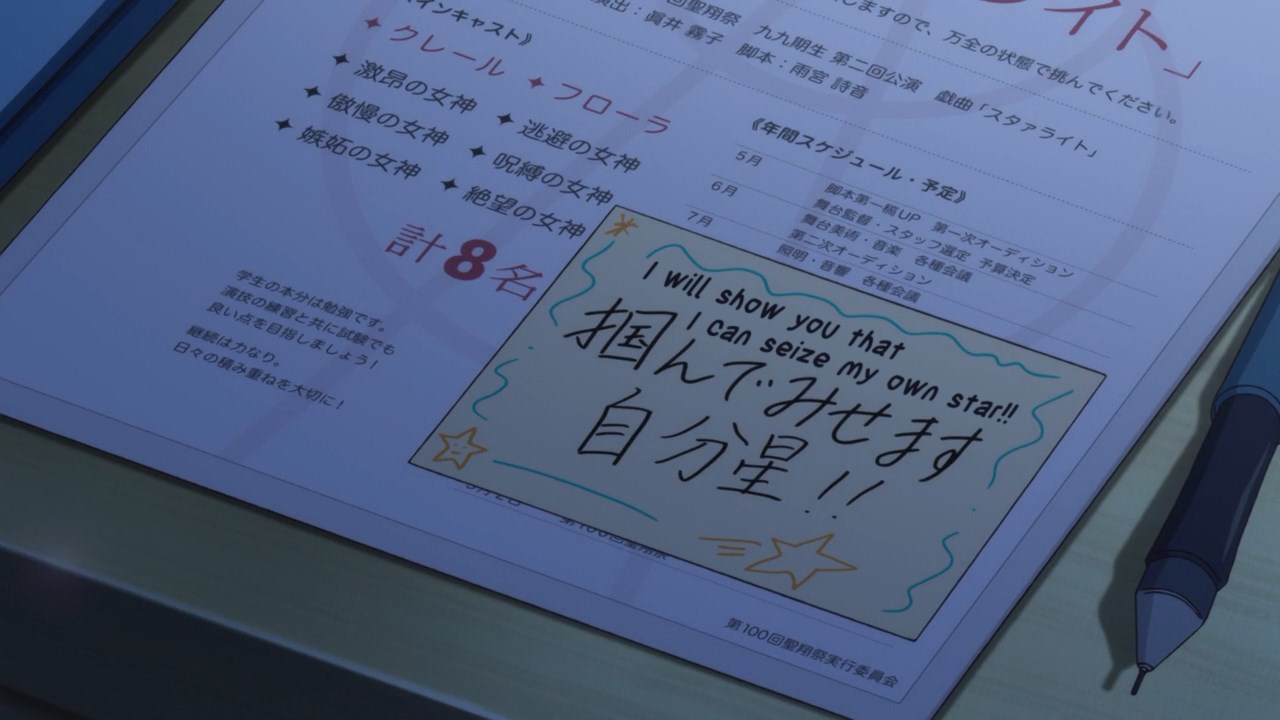 ライト」
しますので、万全の状態で挑んでください。
回聖翔祭 九九期生 第二回公演 戯曲「スタァライト」
演出：眞井 霧子 脚本：雨宮 詩音
インキャスト》
✦ クレール ✦ フローラ
✦ 激昂の女神 ✦ 逃避の女神
✦ 傲慢の女神 ✦ 呪縛の女神
✦ 嫉妬の女神 ✦ 絶望の女神
計8名
学生の本分は勉強です。
演技の練習と共に試験でも
良い点を目指しましょう！
継続は力なり。
日々の積み重ねを大切に！
《年間スケジュール・予定》
5月 脚本第一稿UP 第一次オーディション
6月 舞台監督・スタッフ選定 予算決定
舞台美術・音楽 各種会議
7月 第二次オーディション
照明・音響 各種会議
I will show you that
I can seize my own star!!
掴んでみせます
自分星!!
第100回聖翔祭
第100回聖翔祭実行委員会